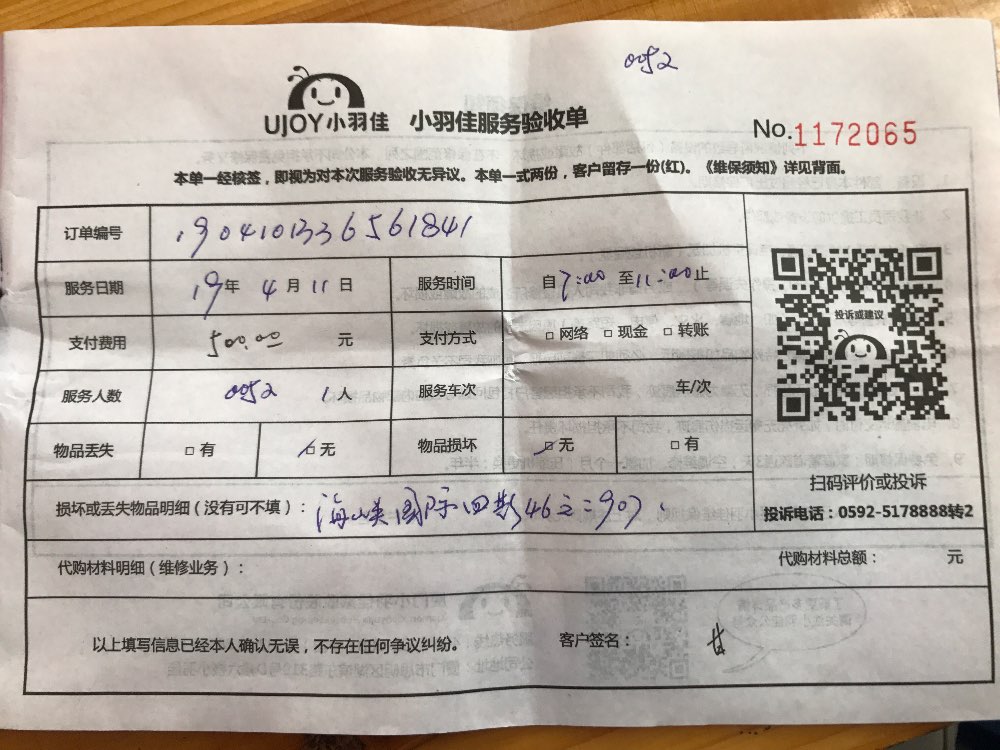 0052
UJOY小羽佳 小羽佳服务验收单
No.1172065
本单一经核签，即视为对本次服务验收无异议。本单一式两份，客户留存一份(红)。《维保须知》详见背面。
订单编号 1904101336561841
服务日期 19年 4月 11日 服务时间 自7:00 至11:00止
支付费用 500.00 元 支付方式 □网络 □现金 □转账
服务人数 0052 1人 服务车次 车/次
物品丢失 □有 □无 物品损坏 □无 □有
投诉或建议
扫码评价或投诉
投诉电话：0592-5178888转2
损坏或丢失物品明细（没有可不填）：海峡国际四期46之二907
代购材料明细（维修业务）： 代购材料总额： 元
以上填写信息已经本人确认无误，不存在任何争议纠纷。 客户签名： 甘